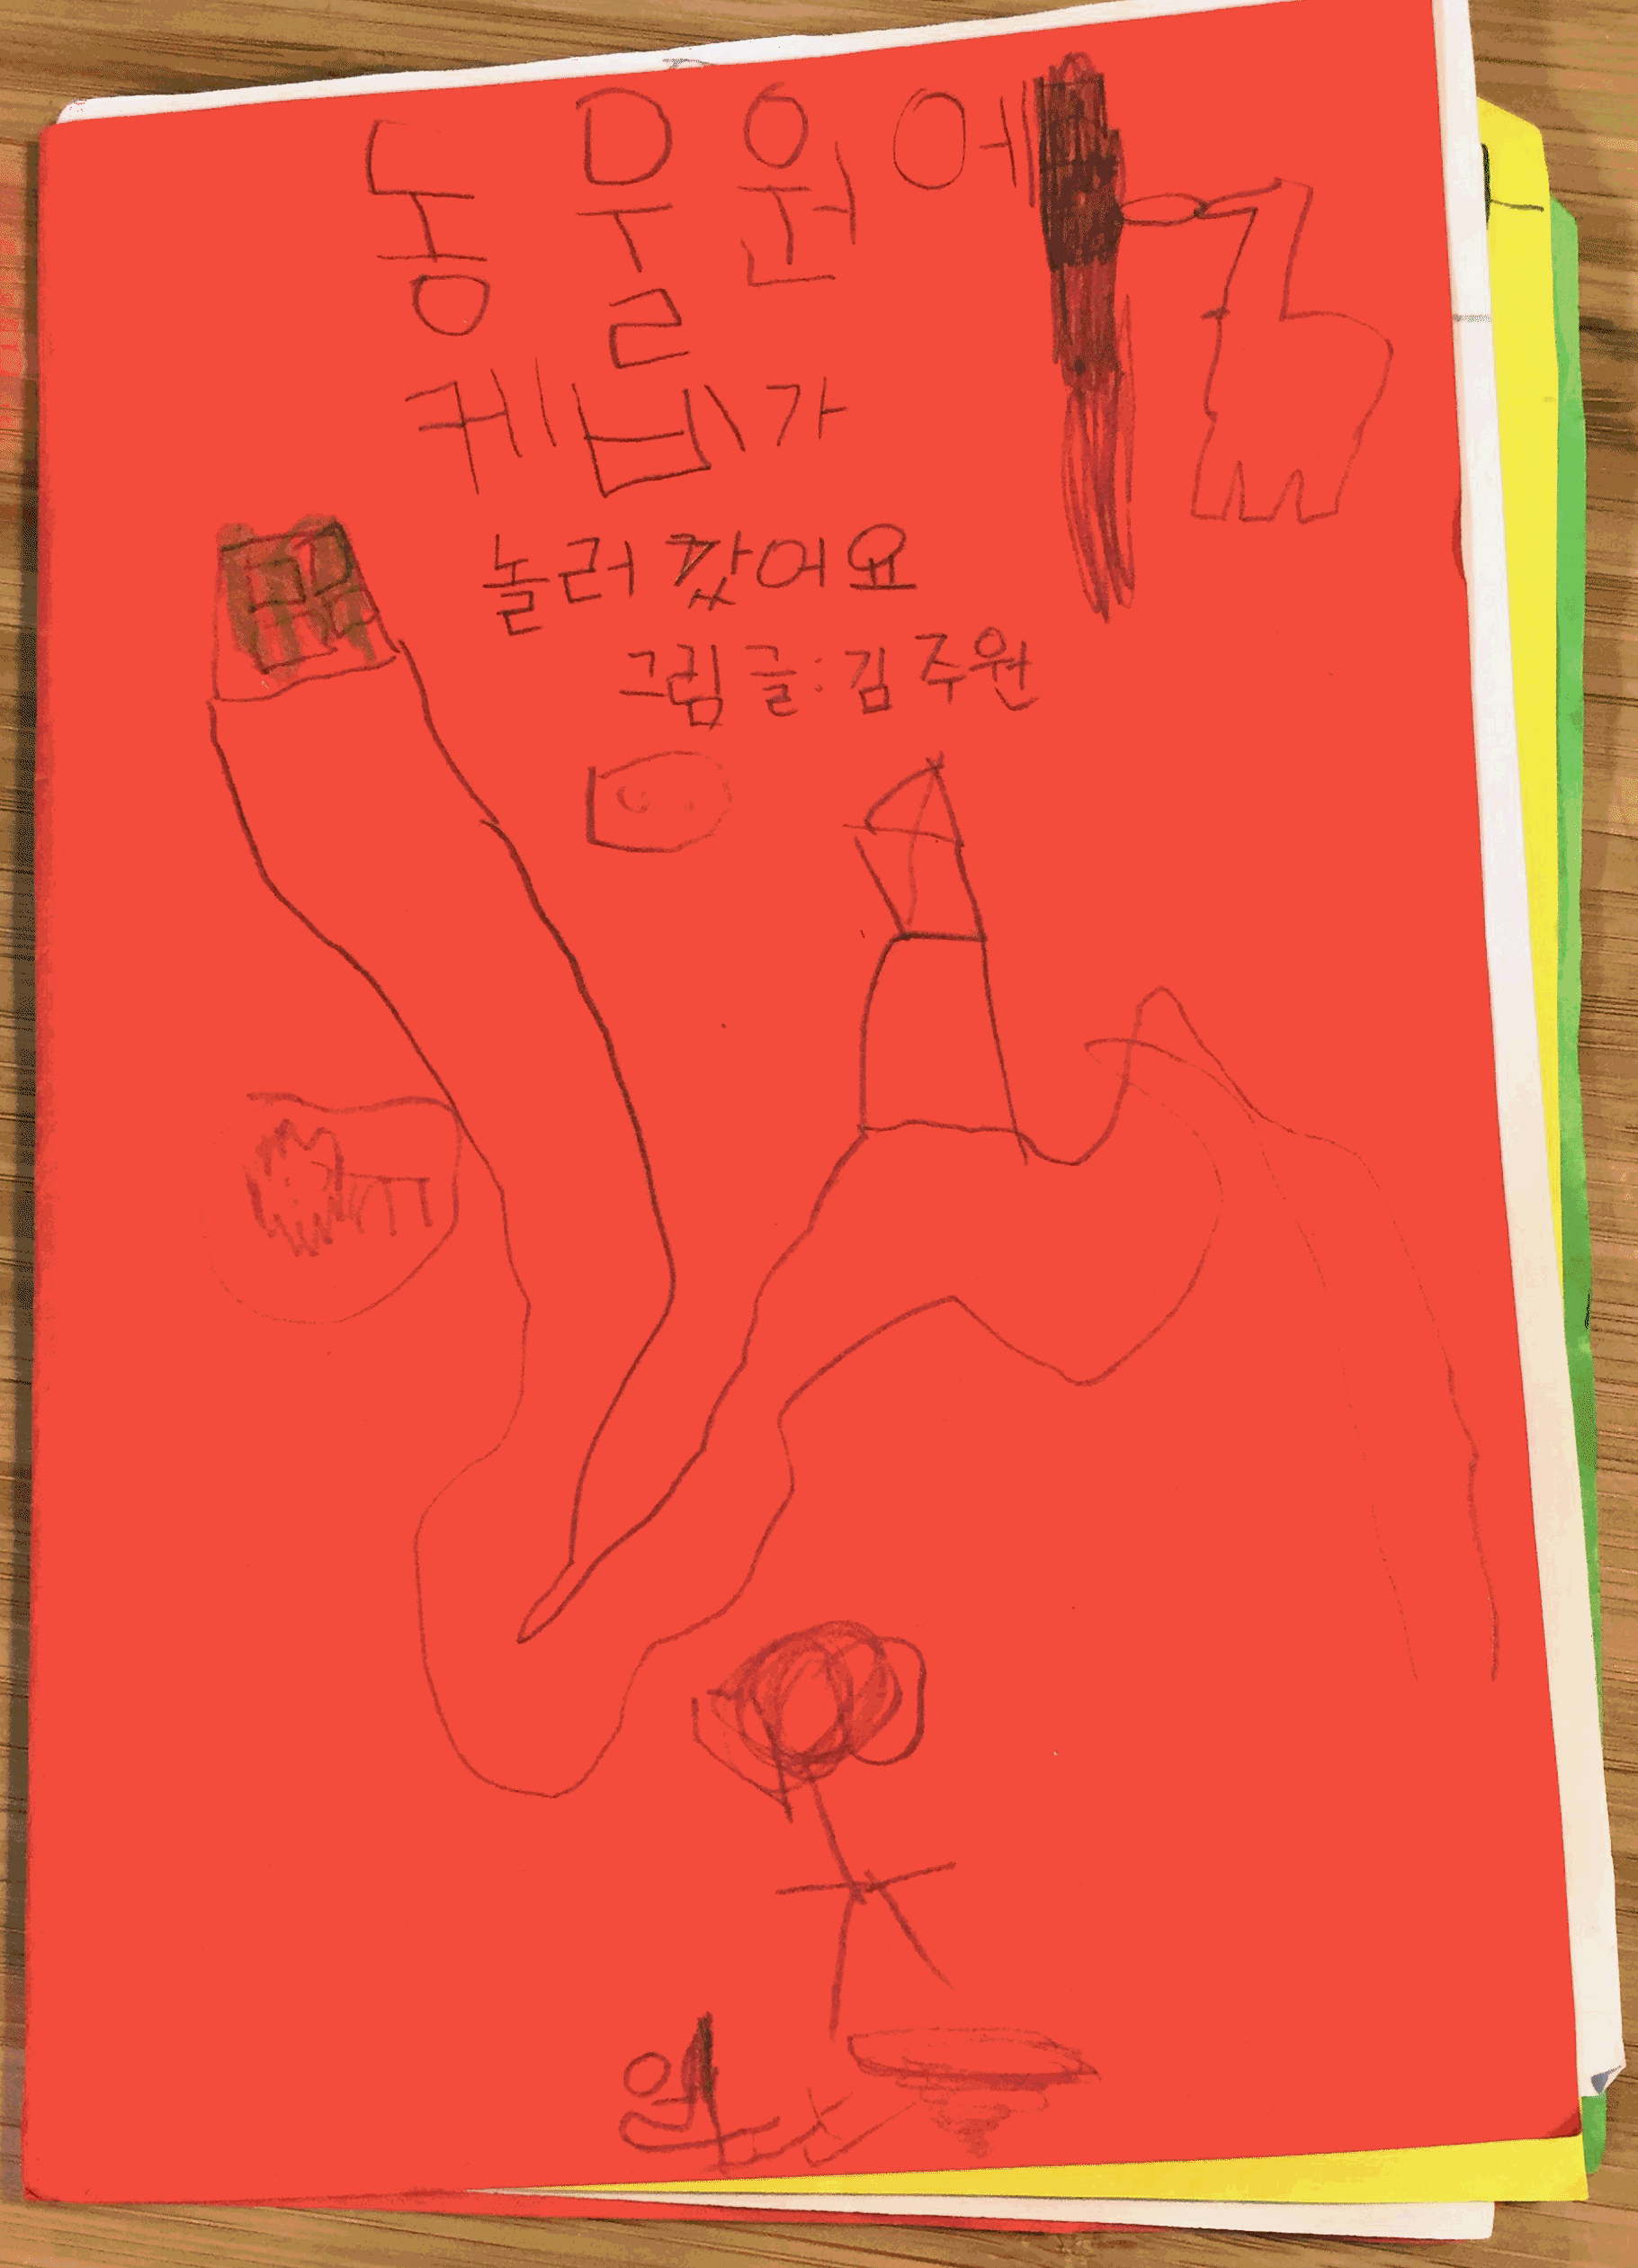 동물원에
케빈가
놀러 갔어요
그림 글: 김주원